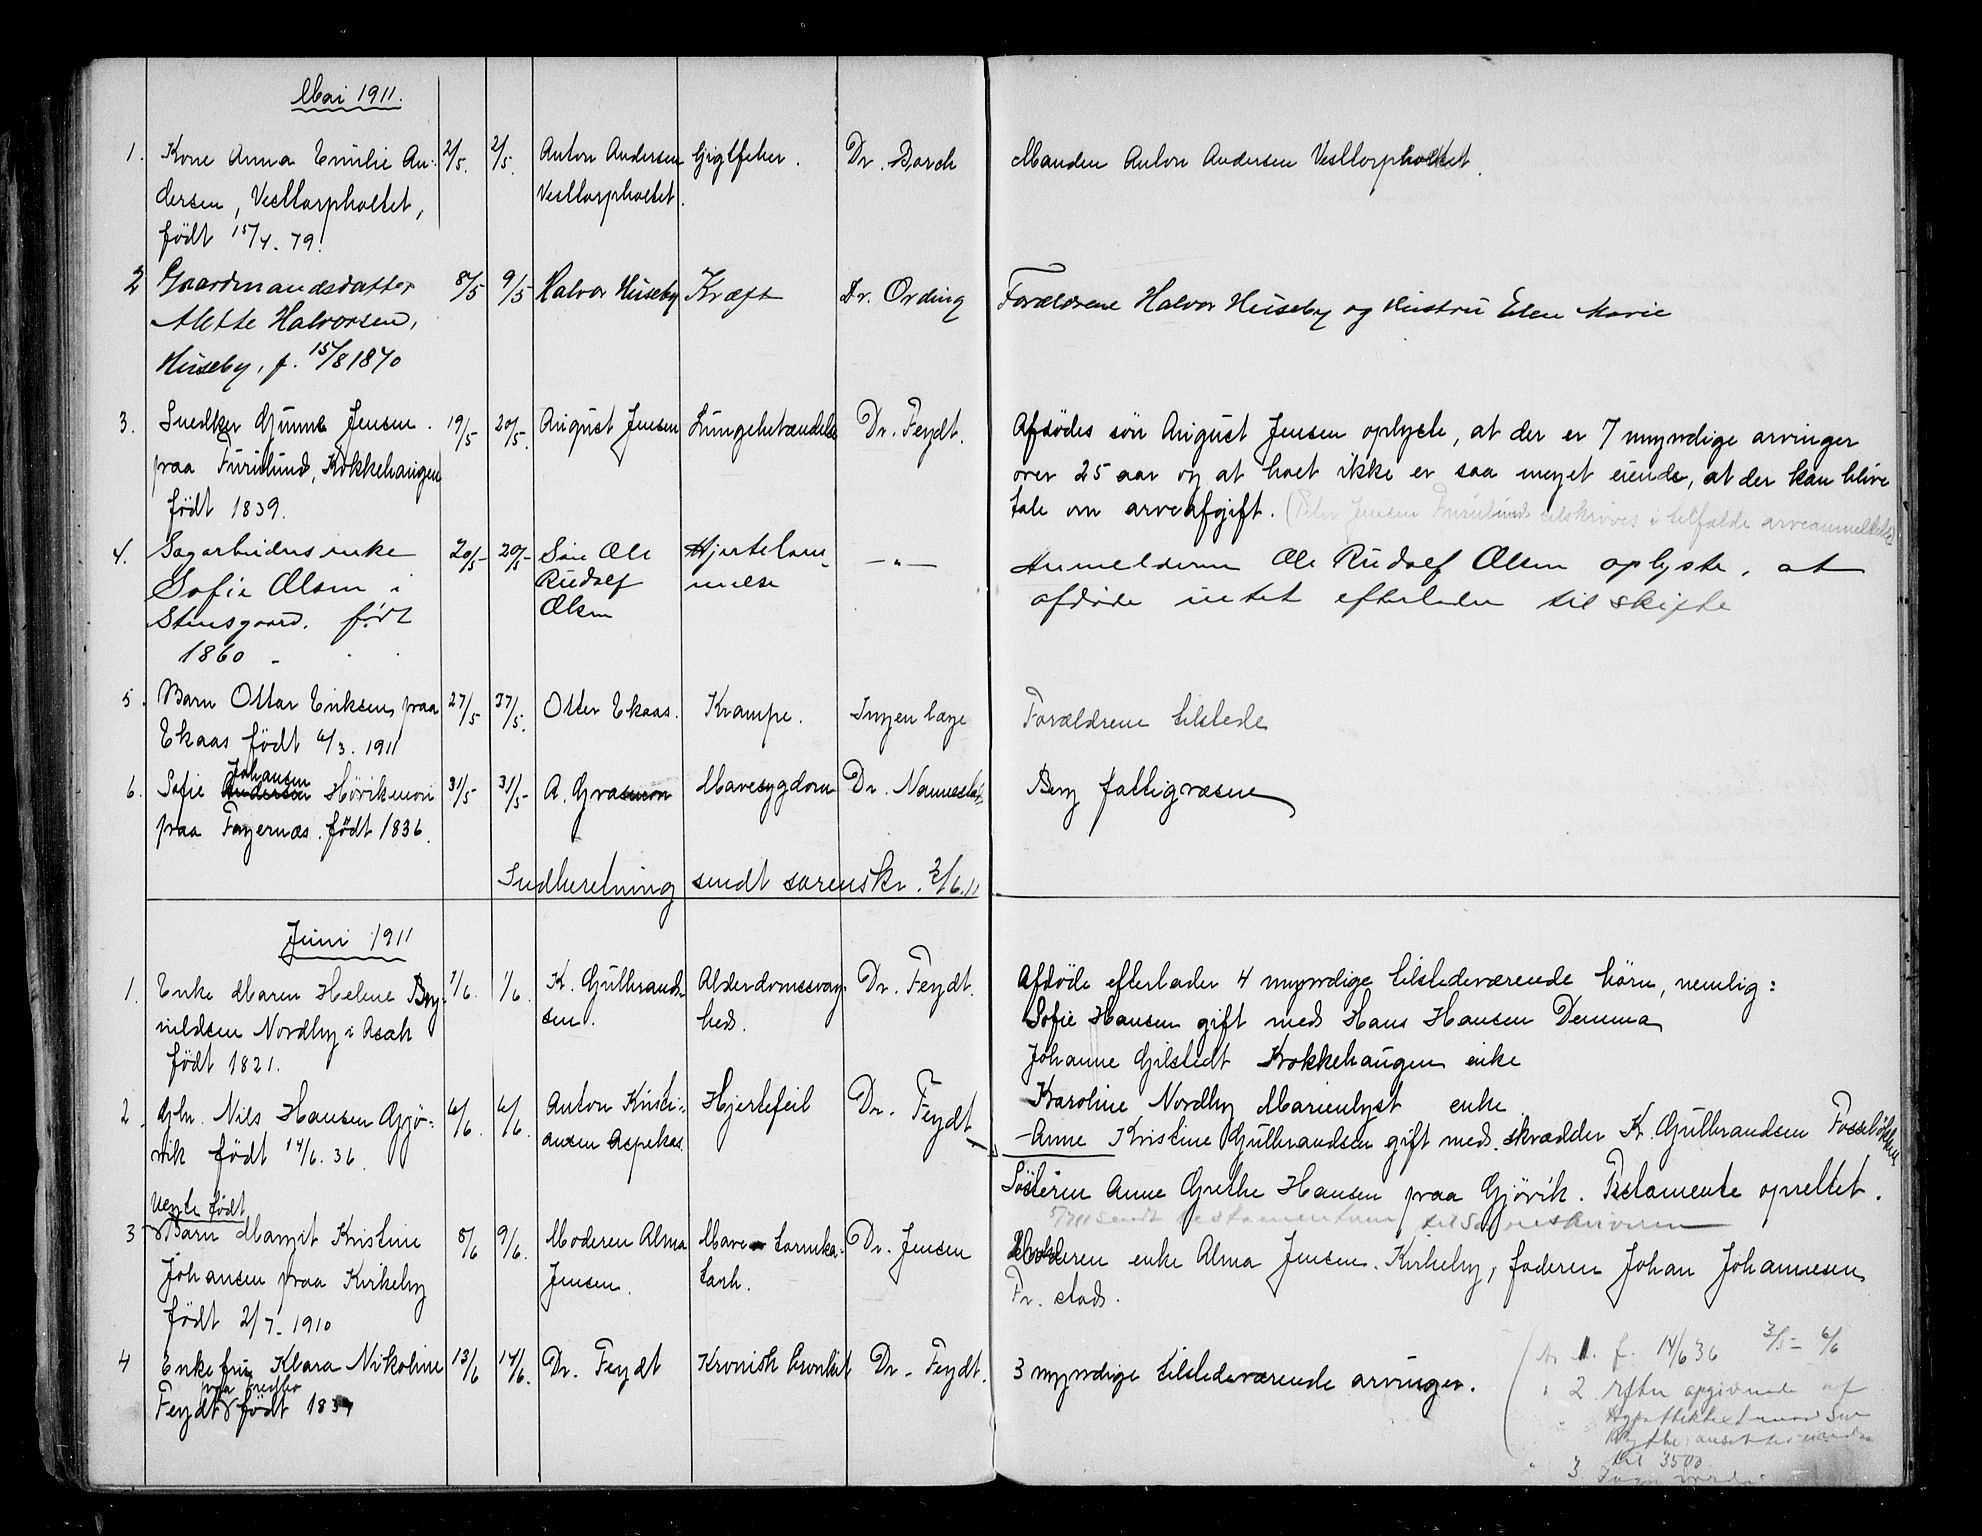 Mai 1911.
1. Kone Anna Emilie An- 2/5. 2/5. Anton Andersen Gigtfeber. Dr. Borch Manden Anton Andersen Vesttorpholtet.
dersen, Vesttorpholtet, Vesttorpholtet.
født 15/4. 79.
2 Gaardmandsdatter 8/5 9/5 Halvor Huseby Kræft Dr. Ording Forældrene Halvor Huseby og Hustru Elen Marie
Alette Halvorsen,
Huseby, f. 15/8 1870
3. Snedker Gunne Jensen 19/5 20/5. August Jensen Lungebetændelse Dr. Feydt. Afdødes søn August Jensen oplyste, at der er 7 myndige arvinger
paa Furulund, Kokkehaugen over 25 aar og at boet ikke er saa meget eiende, at der kan blive
født 1839. tale om arveafgift. (Peter Jensen Furulund tilskrives i tilfælde arveanmeldelse)
4. Sagarbeidersenke 20/5 20/5 Søn Ole Hjertelam- — „ — Anmelderen Ole Rudolf Olsen oplyste, at
Sofie Olsen i Rudolf melse afdøde intet efterlader til skifte
Stensgaard. født Olsen
1860
5. Barn Ottar Eriksen paa 27/5 27/5. Otter Ekaas. Krampe. Ingen læge Forældrene tilstede
Ekaas født 6/3. 1911
Johansen
6. Sofie Andersen Hövikmoen 31/5 31/5 A. Grasmon Mavesygdom Dr. Nannestad Berg fattigvæsen
paa Fagernæs. født 1836.
Indberetning sendt sorenskr. 2/6.11
Juni 1911
1. Enke Maren Helene Bry- 1/6. 1/6. K. Gulbrand- Alderdomssvag- Dr. Feydt. Afdøde efterlader 4 myndige tilstedeværende børn, nemlig:
nildsen Nordby i Asak sen. hed. Sofie Hansen gift med Hans Hansen Demma
født 1821. Johanne Gilstedt Krokkehaugen enke
Karoline Nordby Marienlyst enke
2. Gbr. Nils Hansen Gjö- 6/6. 6/6. Anton Kristi- Hjertefeil Dr. Feydt - Anne Kristine Gulbrandsen gift med skrædder K. Gulbrandsen Fosseløkken
vik født 14/6. 36. ansen Aspekas. Søsteren Anne Grethe Hansen paa Gjövik. Testamente oprettet.
5/7 11 sendt testamentum til Sorenskriveren
Uegte født
3 Barn Margit Kristine 8/6 9/6. Moderen Alma Mave tarmka- Dr. Jensen Moderen enke Alma Jensen. Kirkeby, faderen Johan Johannesen
Johansen paa Kirkeby Jensen. tarh. Fr. stad.
født 2/7. 1910
4 Enkefru Klara Nikoline 13/6 14/6. Dr. Feydt Kronisk bronkit Dr. Feydt. 3 myndige tilstedeværende arvinger.
Feydt født 183
1. f. 14/6 36 3/5 - 6/6
" 2 Efter opgivende af
til 3500.
" 3.